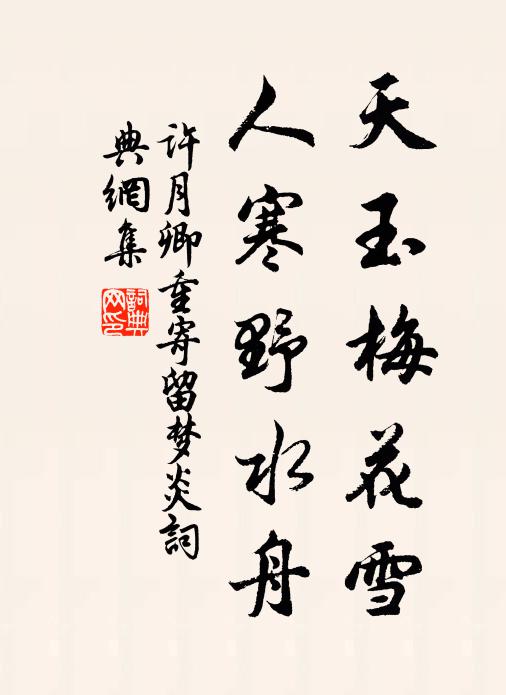 天玉梅花雪
人寒野水舟
许月卿重寄留梦炎詞
典網集
詞典
网印